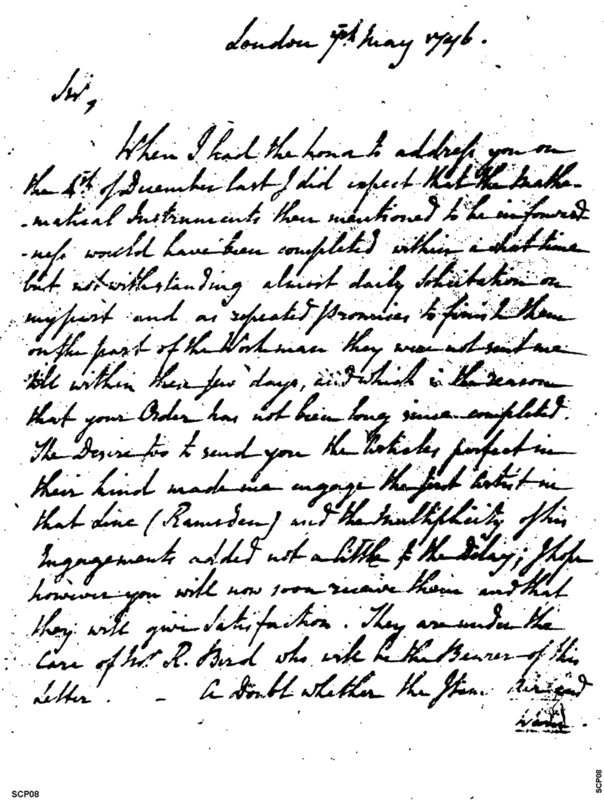 London 7th May 1796.
Sir,
When I had the honor to address you on
the 4th of December last I did expect that the Mathe-
-matical Instruments then mentioned to be in forward
-ness would have been completed within a short time
but notwithstanding almost daily Solicitation on
my part and as repeated Promises to finish them
on the part of the Workman they were not sent me
till within these few days, and which is the reason
that your Order has not been long since completed.
The Desire too to send you the Articles perfect in
their kind made me engage the first Artist in
that Line (Ramsden) and the Multiplicity of his
Engagements added not a little to the Delay; I hope
however you will now soon receive them and that
they will give Satisfaction. They are under the
Care of Mr. R. Bird who will be the Bearer of this
Letter. - A Doubt whether the Item
SCP08
SCP08